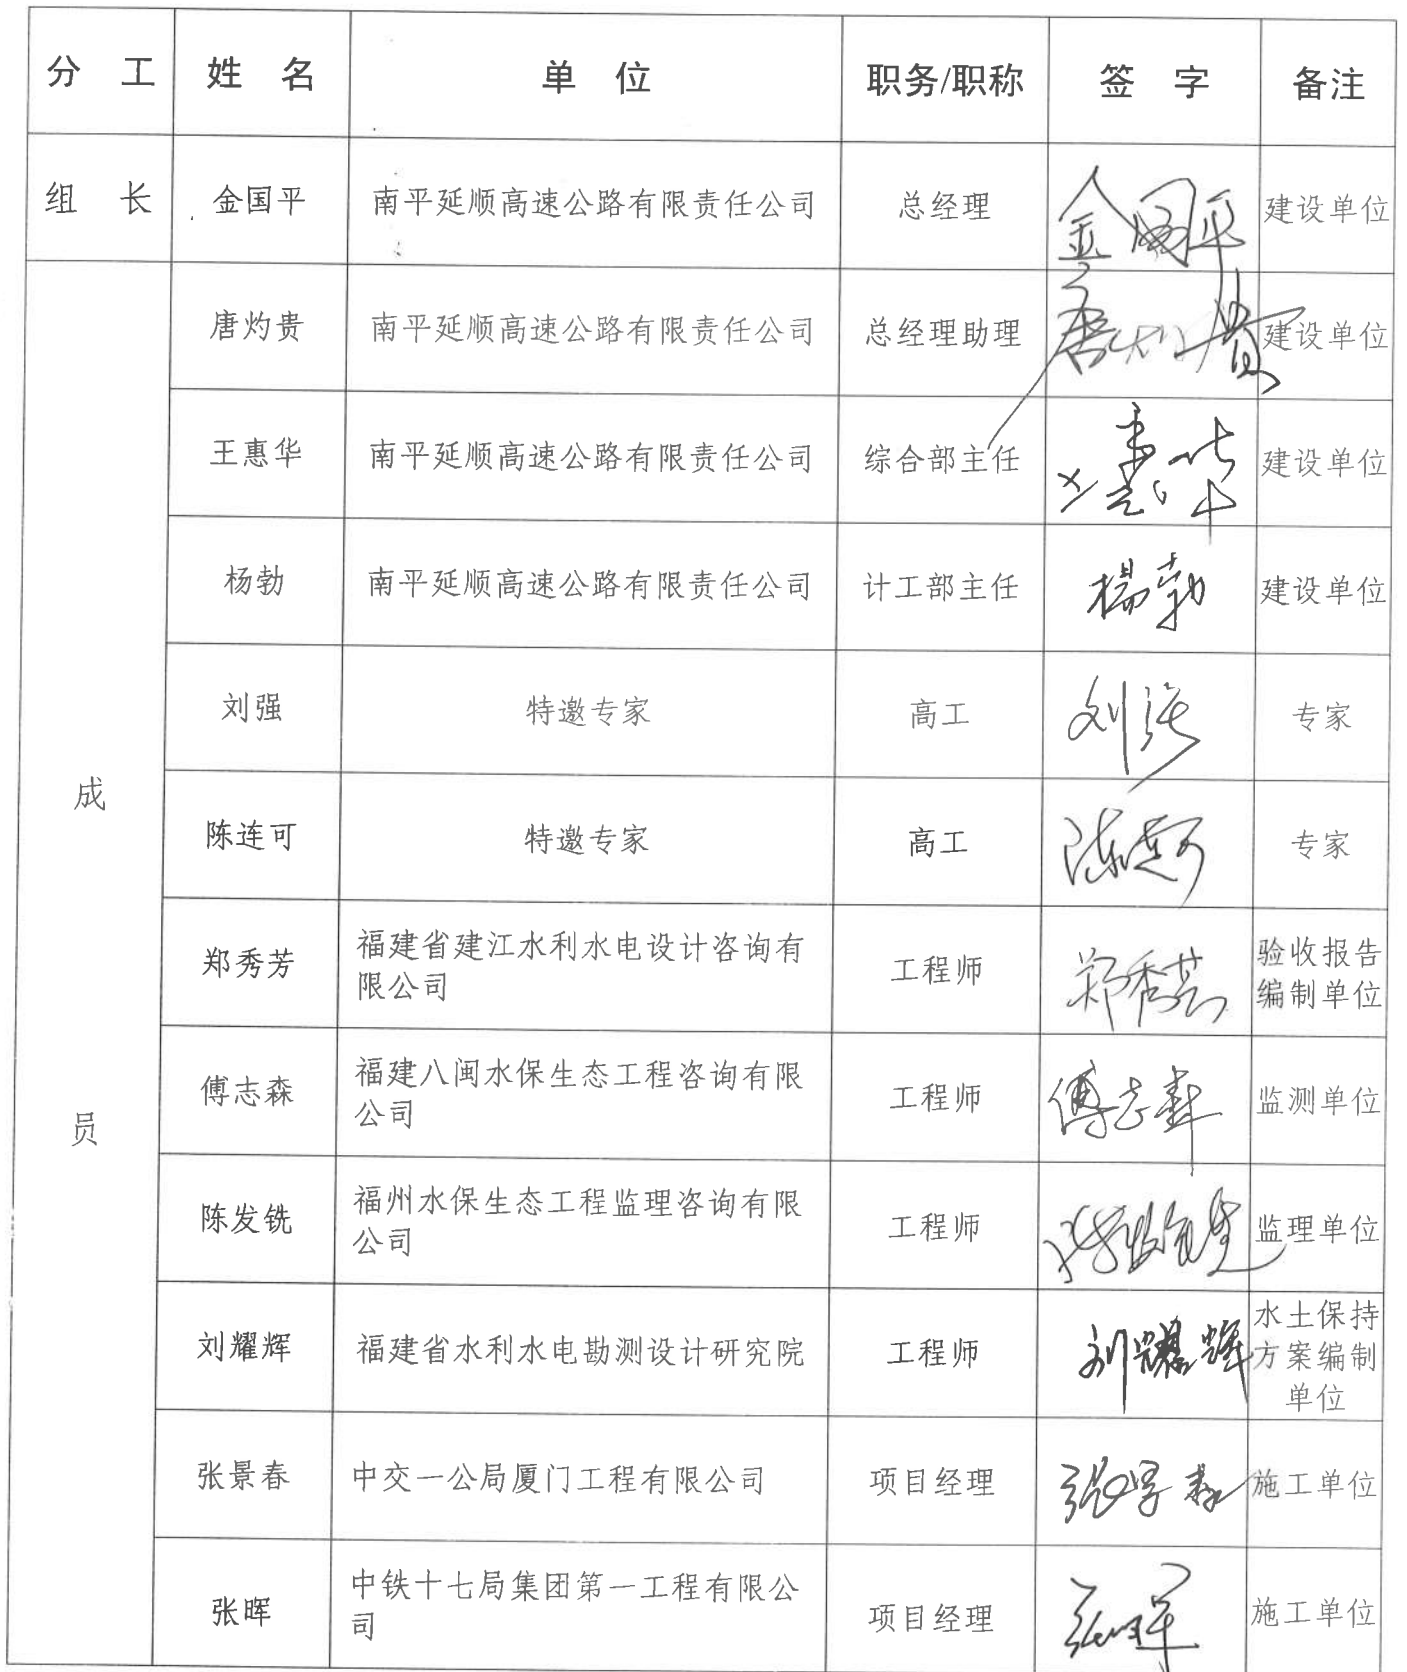 分 工 姓 名 单 位 职务/职称 签 字 备注
组 长 金国平 南平延顺高速公路有限责任公司 总经理 金国平 建设单位
唐灼贵 南平延顺高速公路有限责任公司 总经理助理 唐灼贵 建设单位
王惠华 南平延顺高速公路有限责任公司 综合部主任 王惠华 建设单位
杨勃 南平延顺高速公路有限责任公司 计工部主任 楊勃 建设单位
刘强 特邀专家 高工 刘强 专家
成
陈连可 特邀专家 高工 陈连可 专家
郑秀芳 福建省建江水利水电设计咨询有 工程师 郑秀芳 验收报告
限公司 编制单位
员
傅志森 福建八闽水保生态工程咨询有限 工程师 傅志森 监测单位
公司
陈发铣 福州水保生态工程监理咨询有限 工程师 陈发铣 监理单位
公司
刘耀辉 福建省水利水电勘测设计研究院 工程师 刘耀辉 水土保持
方案编制
单位
张景春 中交一公局厦门工程有限公司 项目经理 张景春 施工单位
张晖 中铁十七局集团第一工程有限公 项目经理 张晖 施工单位
司